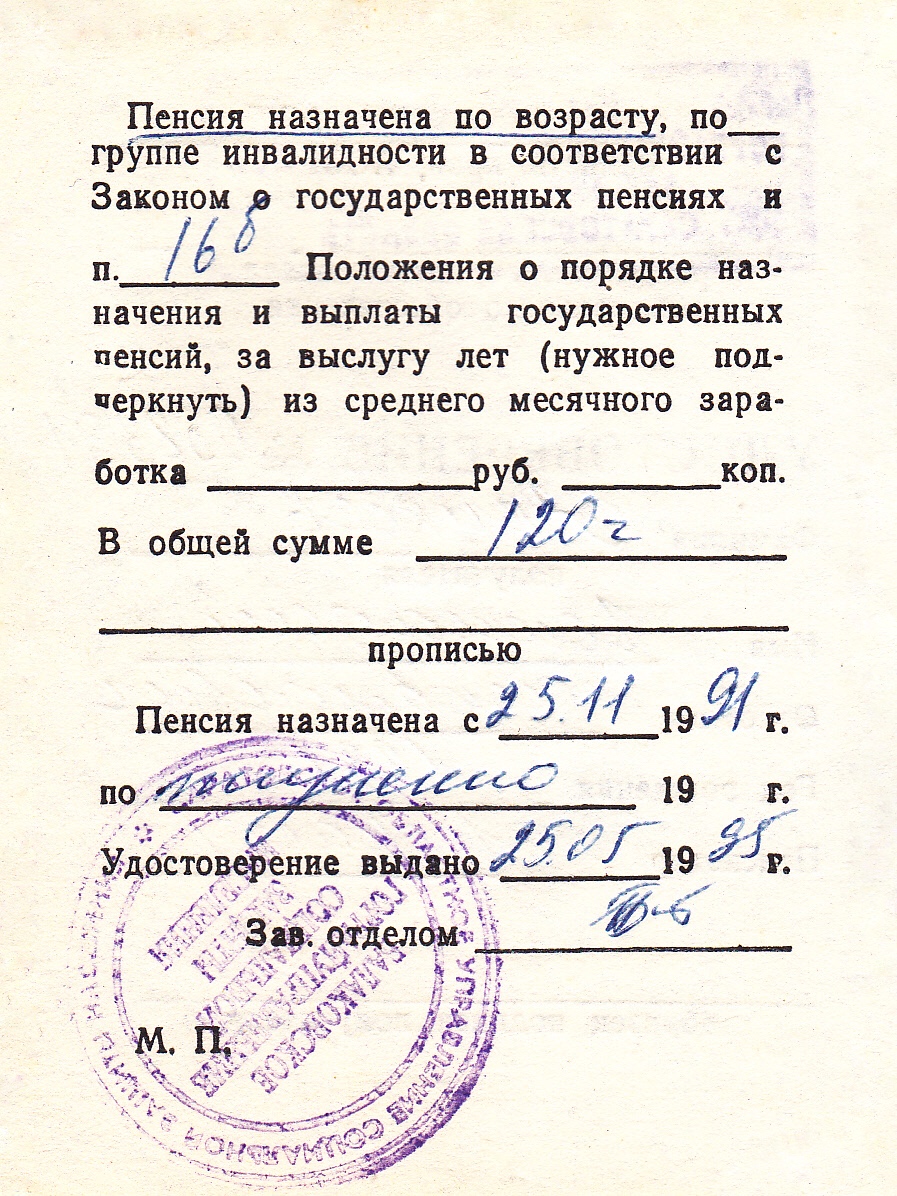 Пенсия назначена по возрасту, по___
группе инвалидности в соответствии с
Законом о государственных пенсиях и
п. 16б Положения о порядке наз-
начения и выплаты государственных
пенсий, за выслугу лет (нужное под-
черкнуть) из среднего месячного зара-
ботка ________ руб. ________ коп.
В общей сумме 120
прописью
Пенсия назначена с 25.11 1991 г.
по пожизненно 19 г.
Удостоверение выдано 25.05 1995 г.
Зав. отделом
М. П.
УПРАВЛЕНИЕ СОЦИАЛЬНОЙ ЗАЩИТЫ НАСЕЛЕНИЯ
БАЛАКОВСКОЕ
ГОРУПРАВЛЕНИЕ
СОЦИАЛЬНОЙ
ЗАЩИТЫ
НАСЕЛЕНИЯ